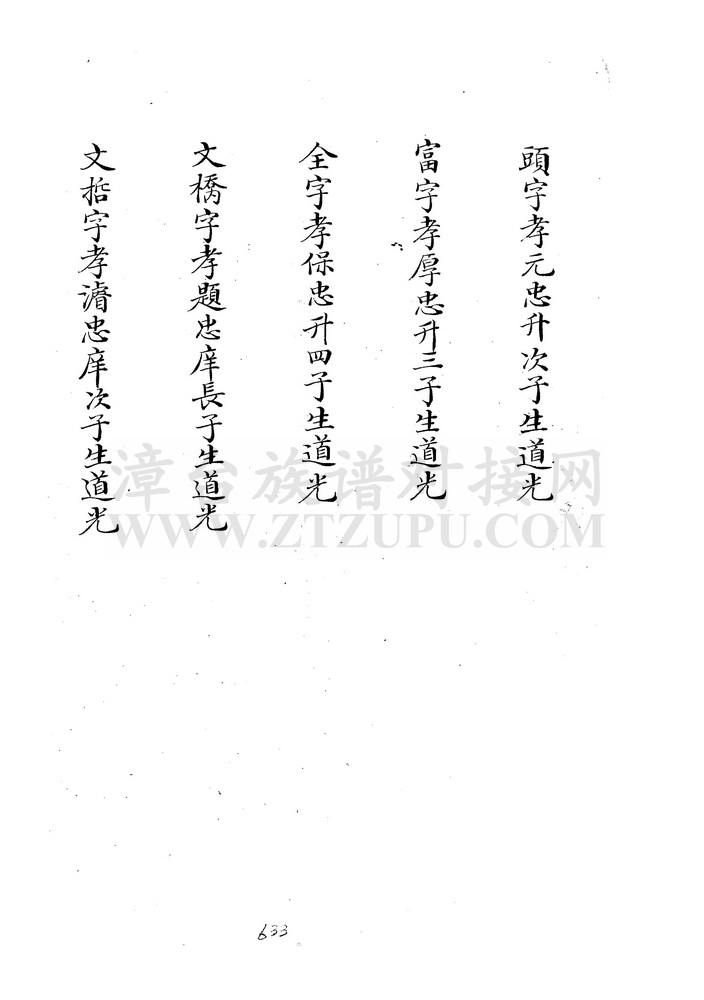 頭字孝元忠升次子生道光
富字孝厚忠升三子生道光
全字孝保忠升四子生道光
文橋字孝題忠庠長子生道光
文哲字孝濬忠庠次子生道光
漳台族谱对接网
WWW.ZTZUPU.COM
633